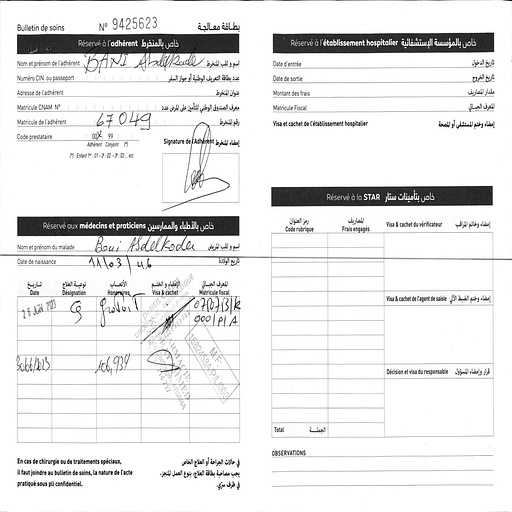 Bulletin de soins N° 9425623 بطاقة معالجة
Réservé à l'adhérent خاص بالمنخرط
Nom et prénom de l'adhérent BANI Abdelkader اسم و لقب المنخرط
Numéro CIN ou passeport عدد بطاقة التعريف الوطنية أو جواز السفر
Adresse de l'adhérent عنوان المنخرط
Matricule CNAM N° معرف الصندوق الوطني للتأمين على المرض عدد
Matricule de l'adhérent 67049 رقم المنخرط
Code prestataire 00 99
Adhérent Conjoint (*)
(*) : Enfant 1er : 01 - 2 : 02 - 3 : 03 ... etc
Signature de l'Adhérent إمضاء المنخرط
Réservé aux médecins et praticiens خاص بالأطباء والممارسين
Nom et prénom du malade Bani Abdelkader اسم و لقب المريض
Date de naissance 11/03/46 تاريخ الولادة
تاريخ نوعية العلاج الأتعاب الإمضاء و الختم المعرف الجبائي
Date Désignation Honoraires Visa & cachet Matricule fiscal
26 JUIN 2023 G gratuit
000/P/A
30/06/2023 106,939
En cas de chirurgie ou de traitements spéciaux,
il faut joindre au bulletin de soins, la nature de l'acte
pratiqué sous pli confidentiel.
في حالات الجراحة أو العلاج الخاص
يجب مصاحبة بطاقة العلاج، بنوع العمل المنجز،
في ظرف سري.
Réservé à l'établissement hospitalier خاص بالمؤسسة الإستشفائية
Date d'entrée تاريخ الدخول
Date de sortie تاريخ الخروج
Montant des frais مقدار المصاريف
Matricule Fiscal المعرف الجبائي
Visa et cachet de l'établissement hospitalier إمضاء وختم المستشفى أو المصحة
Réservé à la STAR خاص بتأمينات ستار
رمز العنوان المصاريف
Code rubrique Frais engagés
Visa & cachet du vérificateur إمضاء وخاتم المراقب
Visa & cachet de l'agent de saisie إمضاء وختم الضبط الآلي
Décision et visa du responsable قرار وإمضاء المسؤول
Total الجملة
OBSERVATIONS